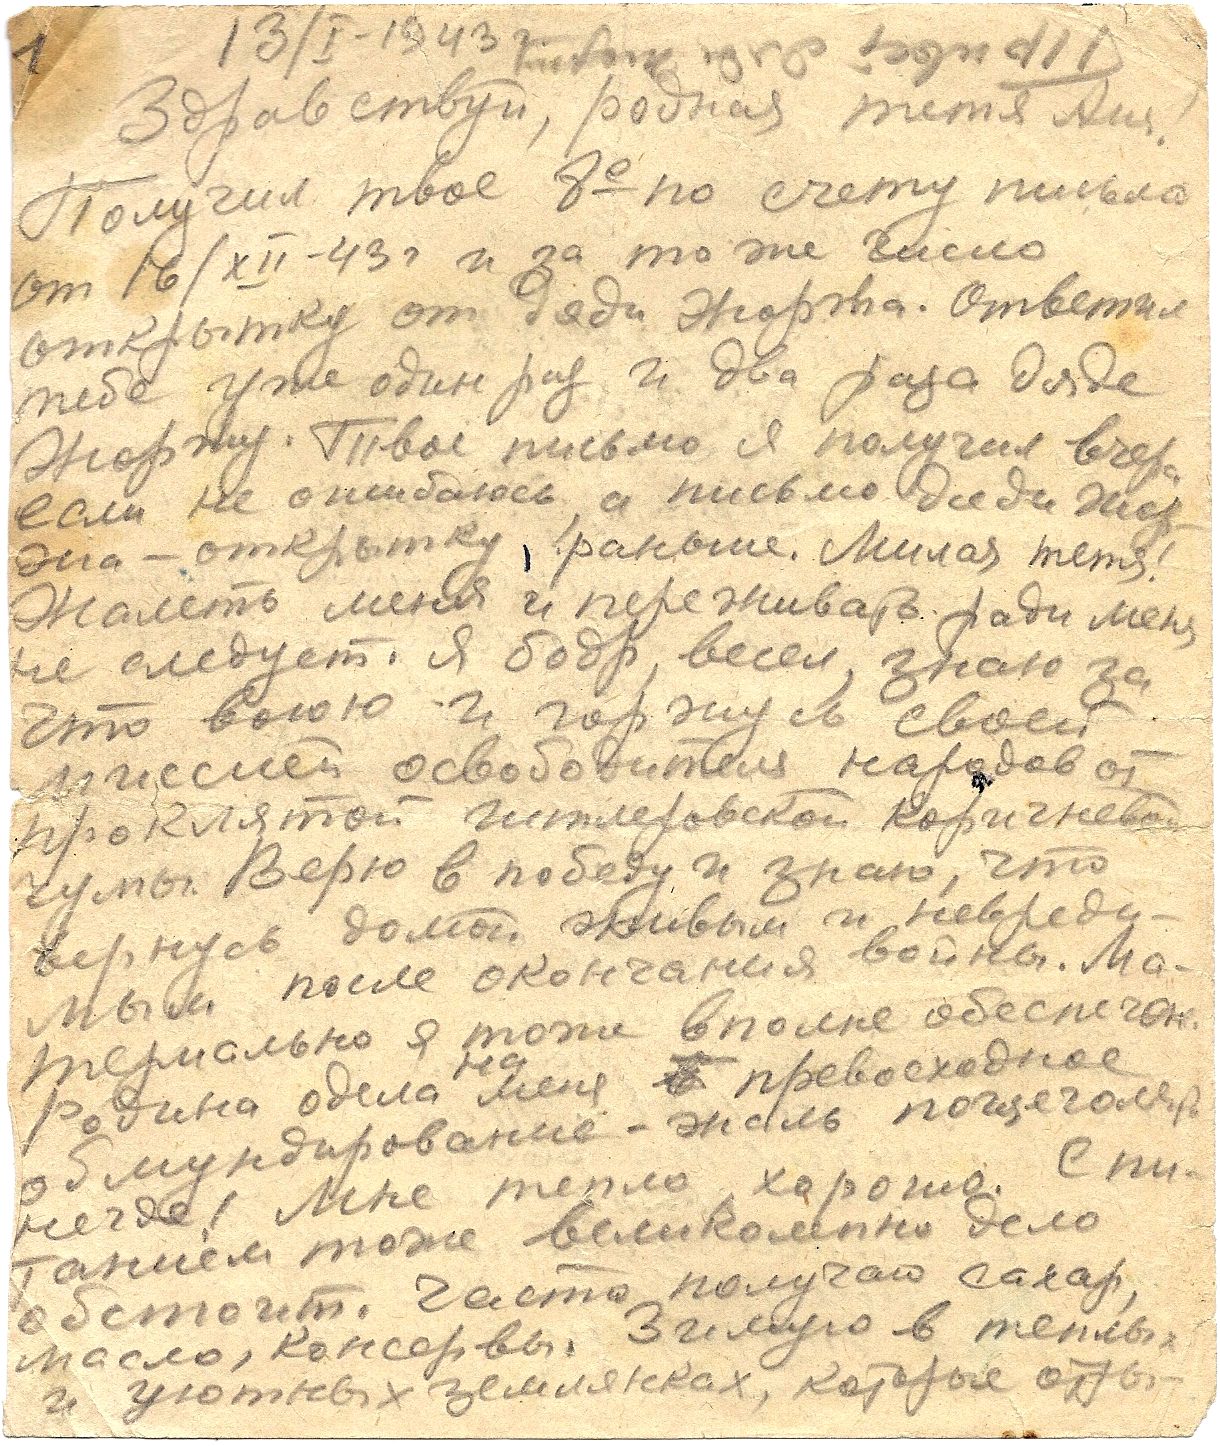 1
13/I-1943 г
Здравствуй, родная тетя Аня!
Получил твое 8е по счету письмо
от 16/XII-43 г и за то же число
открытку от дяди Жоржа. Ответил
тебе уже один раз и два раза дяде
Жоржу. Твое письмо я получил вчера
если не ошибаюсь, а письмо дяди Жор-
жа - открытку, раньше. Милая тетя!
Жалеть меня и переживать ради меня
не следует. Я бодр, весел, знаю за
что воюю и горжусь своей
миссией освободителя народов от
проклятой гитлеровской коричневой
чумы. Верю в победу и знаю, что
вернусь домой живым и невреди-
мым после окончания войны. Ма-
териально я тоже вполне обеспечен.
Родина одела на меня превосходное
обмундирование - жаль пощеголять
негде! Мне тепло, хорошо. С пи-
танием тоже великолепно дело
обстоит. Часто получаю сахар,
масло, консервы. Зимую в теплых
и уютных землянках, которые оты-